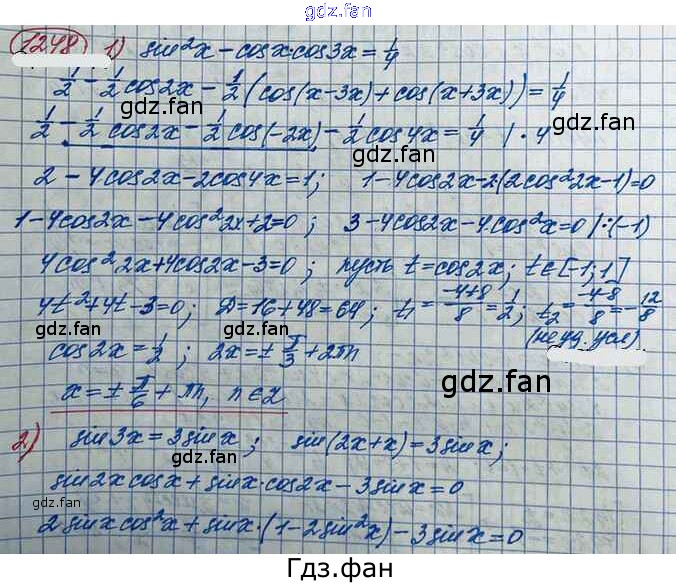 gdz.fan
1248 1) sin²x – cosx·cos3x = 1/4
1/2 – 1/2 cos2x – 1/2 (cos(x–3x) + cos(x+3x)) = 1/4
gdz.fan
1/2 – 1/2 cos2x – 1/2 cos(–2x) – 1/2 cos4x = 1/4 | · 4
gdz.fan
2 – 4cos2x – 2cos4x = 1; 1 – 4cos2x – 2(2cos²2x – 1) = 0
gdz.fan
1 – 4cos2x – 4cos²2x + 2 = 0; 3 – 4cos2x – 4·cos²x = 0 |:(–1)
4cos²2x + 4cos2x – 3 = 0; пусть t = cos2x; t ∈ [–1; 1]
gdz.fan
4t² + 4t – 3 = 0; D = 16 + 48 = 64; t₁ = (–4+8)/8 = 1/2; t₂ = (–4–8)/8 = –12/8
gdz.fan
(не уд. усл)
cos2x = 1/2; 2x = ± π/3 + 2πn
gdz.fan
x = ± π/6 + πn, n ∈ Z
2) sin3x = 3sinx; sin(2x+x) = 3sinx;
gdz.fan
gdz.fan
sin2x cosx + sinx·cos2x – 3sinx = 0
gdz.fan
2sinxcos²x + sinx·(1 – 2sin²x) – 3sinx = 0
Гдз.фан